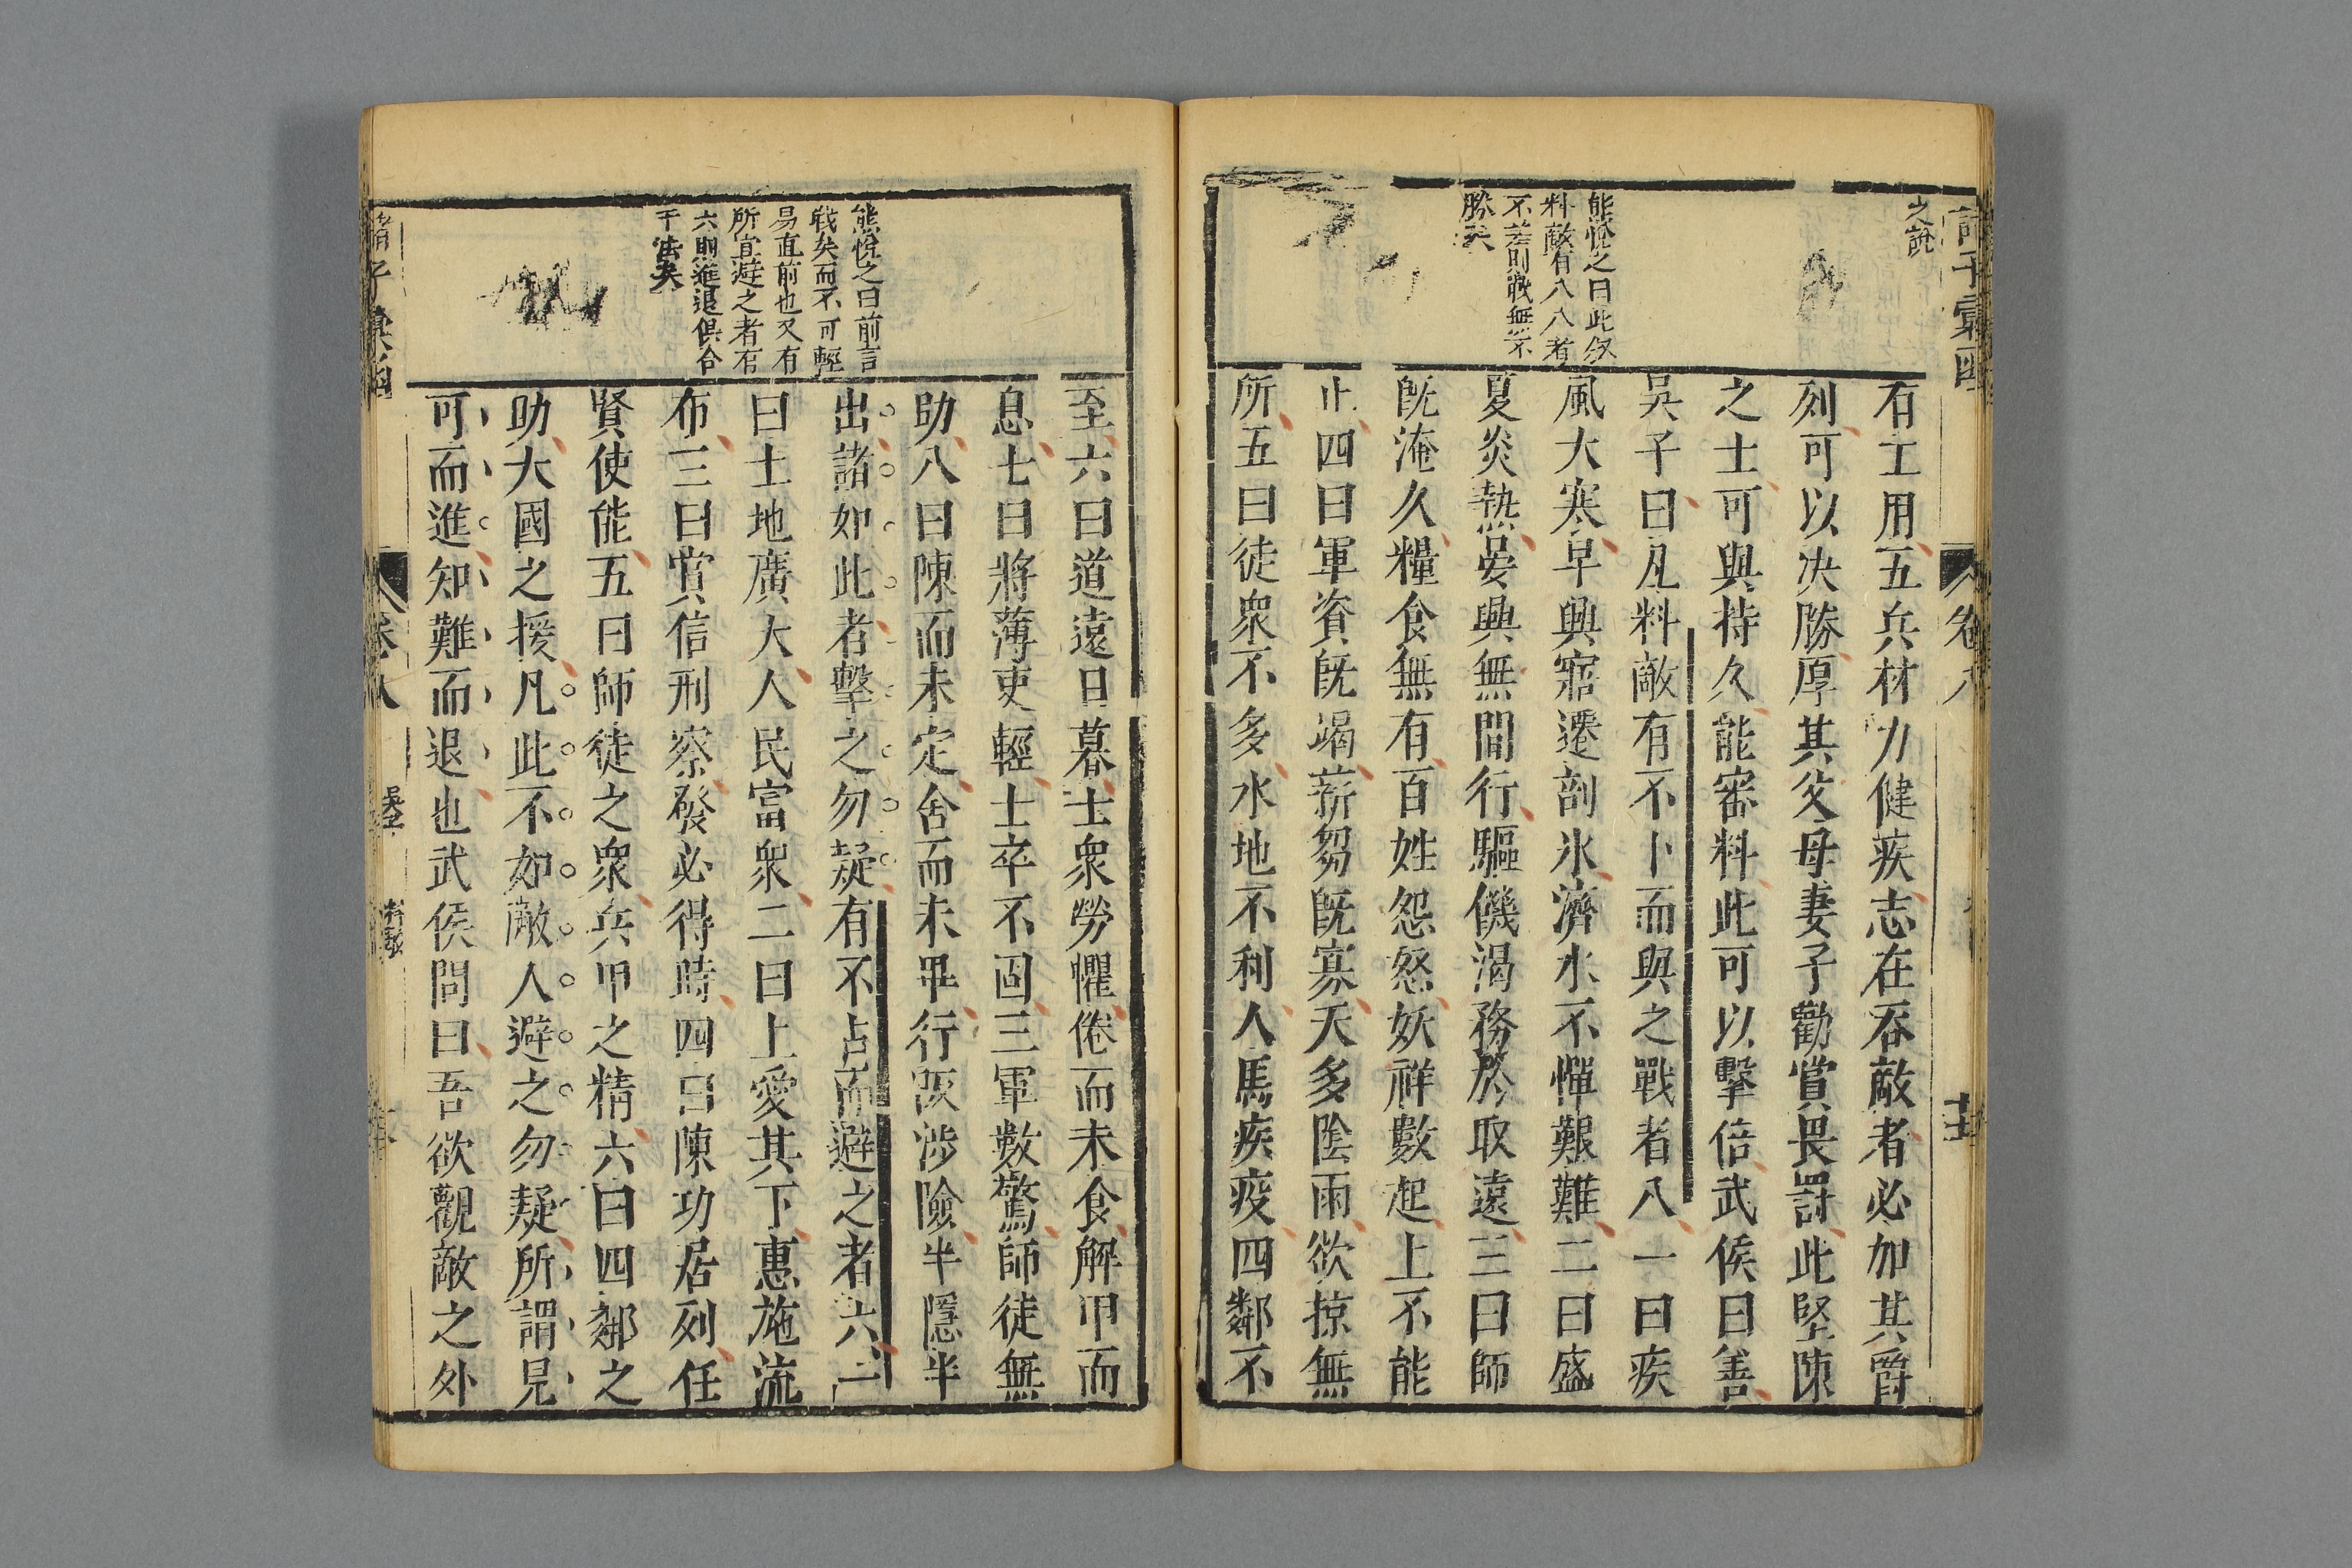 諸子彙函
卷八
之說
熊悅之曰此叙
料敵有八八者
不差則戰無不
勝矣
有工用五兵材力健疾志在吞敵者必加其爵
列可以决勝厚其父母妻子勸賞畏罸此堅陳
之士可與持久能審料此可以擊倍武侯曰善
吳子曰凡料敵有不卜而與之戰者八一曰疾
風大寒早興寤遷剖氷濟水不憚艱難二曰盛
夏炎熱晏興無間行驅饑渴務於取遠三曰師
旣淹久糧食無有百姓怨怒妖祥數起上不能
止四曰軍資旣竭薪芻旣寡天多陰雨欲掠無
所五曰徒衆不多水地不利人馬疾疫四鄰不
熊悅之曰前言
戰矣而不可輕
易直前也又有
所宜避之者有
六則進退俱合
于法矣
至六曰道遠日暮士衆勞懼倦而未食解甲而
息七曰將薄吏輕士卒不固三軍數驚師徒無
助八曰陳而未定舍而未畢行阪涉險半隱半
出諸如此者擊之勿疑有不占而避之者六一
曰土地廣大人民富衆二曰上愛其下惠施流
布三曰賞信刑察發必得時四曰陳功居列任
賢使能五曰師徒之衆兵甲之精六曰四鄰之
助大國之援凡此不如敵人避之勿疑所謂見
可而進知難而退也武侯問曰吾欲觀敵之外
諸子彙函
卷八